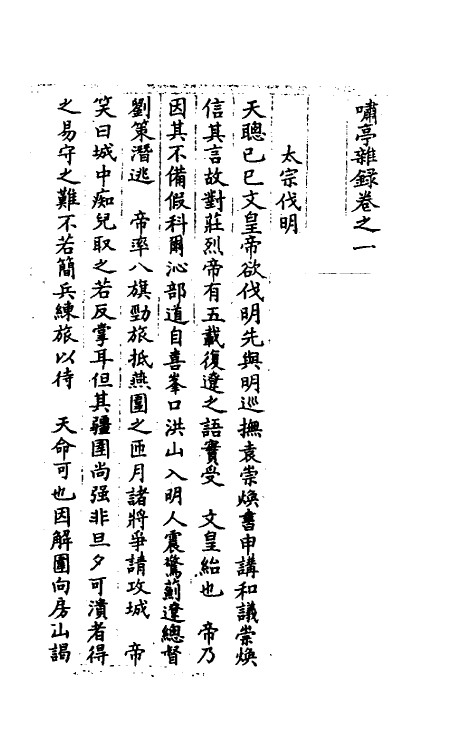 嘯亭雜録卷之一
太宗伐明
天聰己巳文皇帝欲伐明先與明巡撫袁崇煥書申講和議崇煥
信其言故對莊烈帝有五載復遼之語實受　文皇紿也　帝乃
因其不備假科爾沁部道自喜峯口洪山入明人震驚薊遼總督
劉策潛逃　帝率八旗勁旅抵燕圍之匝月諸將爭請攻城　帝
笑曰城中痴兒取之若反掌耳但其疆圉尚强非旦夕可潰者得
之易守之難不若簡兵練旅以待　天命可也因解圍向房山謁